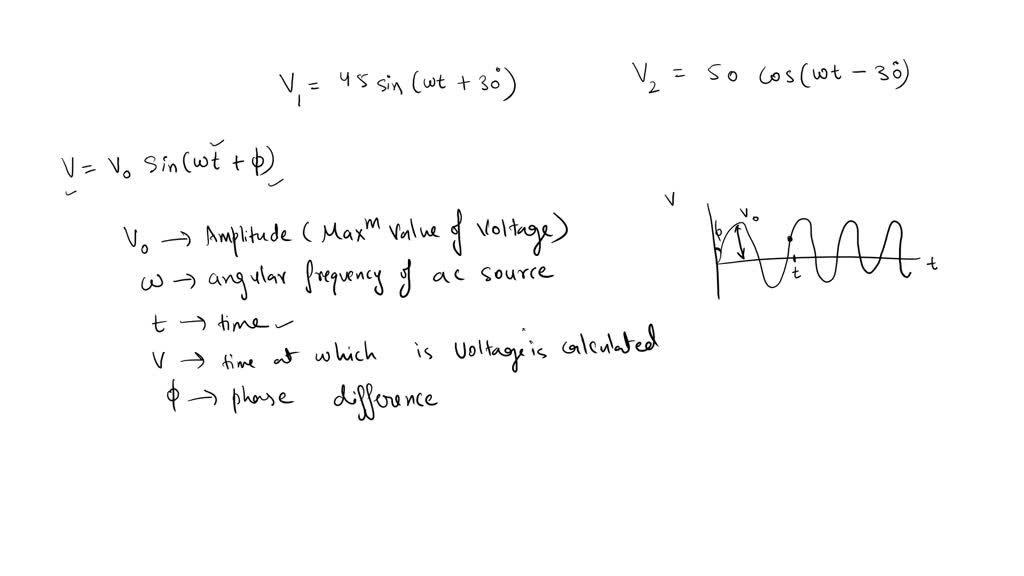 V₁ = 45 sin (ωt + 30°)
V₂ = 50 cos(ωt - 30°)
V = V₀ sin(ωt + ϕ)
V₀ → Amplitude (Maxᵐ value of voltage)
ω → angular frequency of ac source
t → time
V → time at which is voltage is calculated
ϕ → phase difference
V
V₀
ϕ
t
t